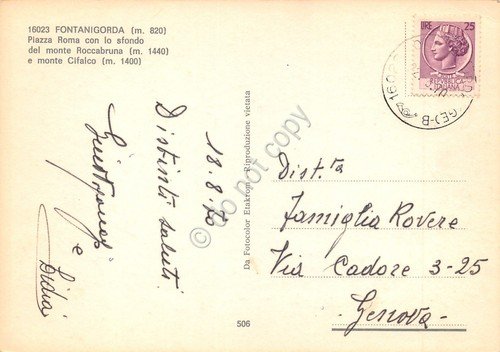 16023 FONTANIGORDA (m. 820)
Piazza Roma con lo sfondo
del monte Roccabruna (m. 1440)
e monte Cifalco (m. 1400)
LIRE 25
18.8.73
Distinti saluti
e
Lidia
Da Fotocolor Etakrom. Riproduzione vietata
do not copy
Dist.ta
Famiglia Rovere
Via Cadore 3-25
Genova.
506